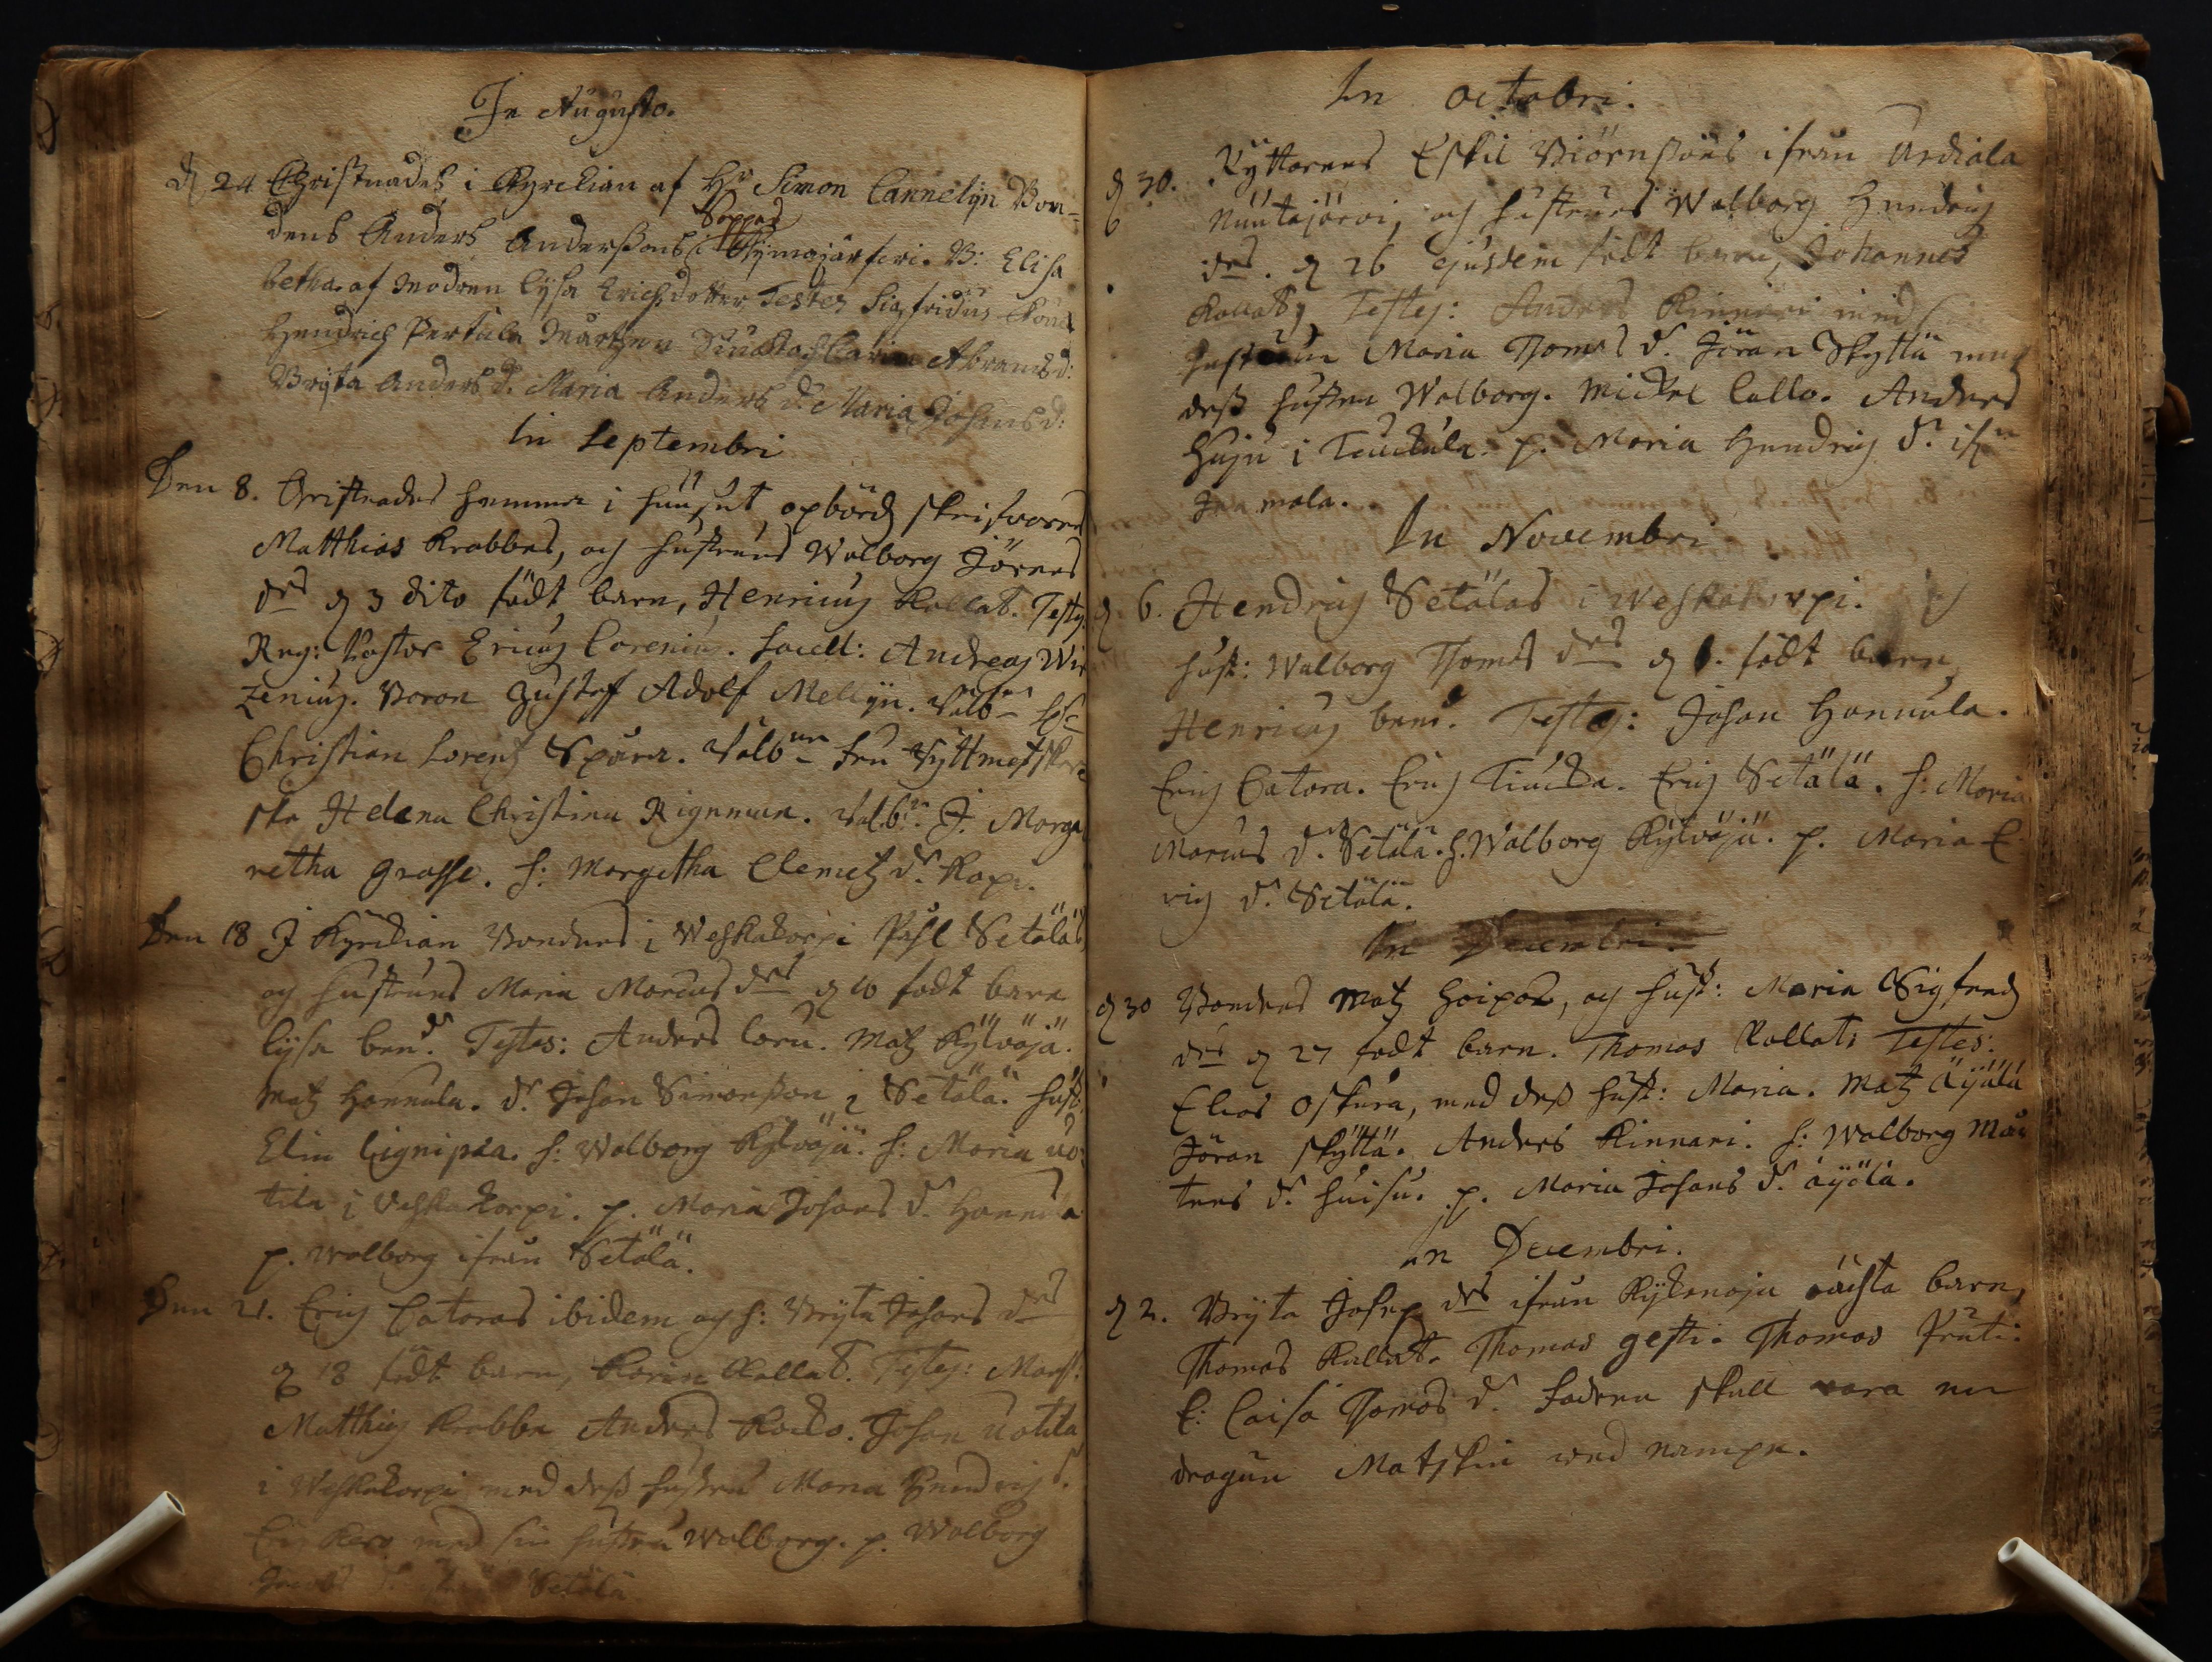 In Augusto.
d 24 Christnades i Kyrckian af Hr Simon Cannelijn Bon=
dens Anders Anderssons i Kymajärfwi. B: Elisa
Soppas
betha. af Modren Lysa Erichsdotter, Testes Sigfridus
Hendrich Pertula Mårthen Carin Abramsd:
Bryta Anders d. Maria Anders d: Maria Johans d:
In Septembri
Den 8. Christnades hemma i huuset, opbörds skrifwarens
Matthias Krabbes, och hustrus Walborg Jörens
drs d 3 dito födt barn, Henricus kallat. Testes
Reg: Pastor Ericus Corenius. Sacell: Andreas Wir
zenius. Baron Gustaff Adolf Mellijn. Välb
Christian Lorentz Spåra. Välbne Fru Ryttmestker
ska Helena Christina Rignman. Välb: J. Marga
retha Grasse. h: Margetha Clemetz dr. Kapi.
Den 18 J Kyrckian Bondens i Weskakorpi Påhl Setäläs
och hustrus Maria Marcus drs d 10 födt barn
Lijsa ben:d Testes: Anders Caru. Matz Kylväjä.
Matz Hannula. d. Johan Simonsson i Setälä. hust:
Elin Lignipää. h: Walborg Kylväjä. h: Maria uo
tila i Veskakorpi. p. Maria Johans d. Hannula
p. Walborg ifrån Setälä.
Den 21. Erich Catoras ibidem och h: Bryta Johans drs
d 18 födt barn, Karin kallat. Testes: Mons:
Matthias Krabbe Anders Kocko. Johan uotila
i Weskakorpi med dess hustru Maria Hendrichs d.
Erich Kero med sin hustru Walborg. p. Walborg
Jacobs d. Setälä
In octobri.
d 30. Ryttarens Eskil Biörnssons ifrån Urdiala
Nuutajärvi, och hustrus Walborg Hendrichs
drs. d 26 ejusdem födt barn, Johannes
kallat, Testes: Anders Kinnari med sin
hustru Maria Thomas d. Jöran Skyttä med
dess hustru Walborg. Mickel Callo. Anders
Huju i Teuckula. p. Maria Hendrichs d. ifrn
mala.
In Novembri
d. 6. Hendrich Setäläs i Weskakorpi. och
hust: Walborg Thomas drs d 1. födt barn,
Henricus bend. Testes: Johan Hannula.
Erich Catara. Erich Tiucka. Erich Setälä. h: Maria
Marcus d. Setälä. h. Walborg Kylväjä. p. Maria E
rich d. Setälä.
In Decembri.
d 30 Bondens Matz Hoipos, och hust: Maria Sigfredz
drs d 27 födt barn. Thomas kallat: Testes:
Elias Oskura, med dess hust: Maria. Matz Äijälä
Jöran Skyttä. Anders Kinnari. h: Walborg Mår
tens d. huisu. p. Maria Johans d. äyälä.
In Decembri.
d 2. Bryta Josep drs ifrån Kykänoja oächta barn,
Thomas kallat. Thomas gesti. Thomas Pruti.
h: Caisa Thomas d. Fadren skall vara en
dragun Matzkin wed nampn.